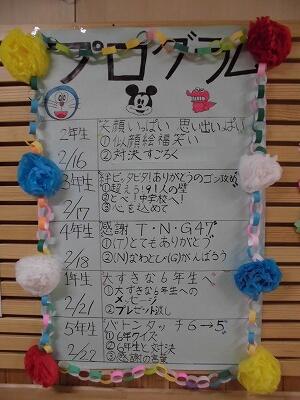 プログラム
2年生
2/16
笑顔いっぱい 思い出いっぱい
①似顔絵福笑い
②対決すごろく
3年生
2/17
絆ピッタピタ!ありがとうのゴン攻め
①超えろ!91人の壁
②とべ!中学校へ!
③心を込めて
4年生
2/18
感謝 T・N・G47
①(T)とてもありがとう
②(N)なわとび(G)がんばろう
1年生
2/21
大すきな6年生へ
①大すきな6年生への
メッセージ
②プレゼント渡し
5年生
2/22
バトンタッチ6→5
①6年クイズ
②6年生と対決
③感謝の言葉